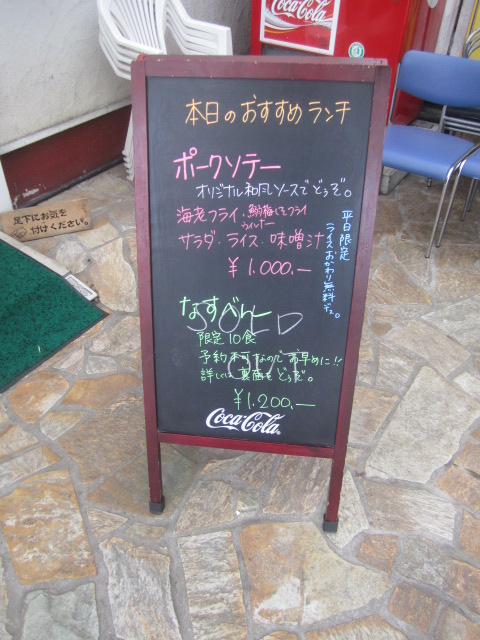 Coca-Cola
本日のおすすめランチ
ポークソテー
オリジナル和風ソースでどうぞ。
海老フライ・鰯梅しそフライ
ウィンナー
サラダ・ライス・味噌汁
¥1.000.—
平日限定
ライスおかわり無料デス。
なすべんー
SOLD
限定10食
予約不可なのでお早めに!!
OUT
詳しくは裏面をどうぞ。
¥1.200.—
Coca-Cola
足下にお気を
付けください。